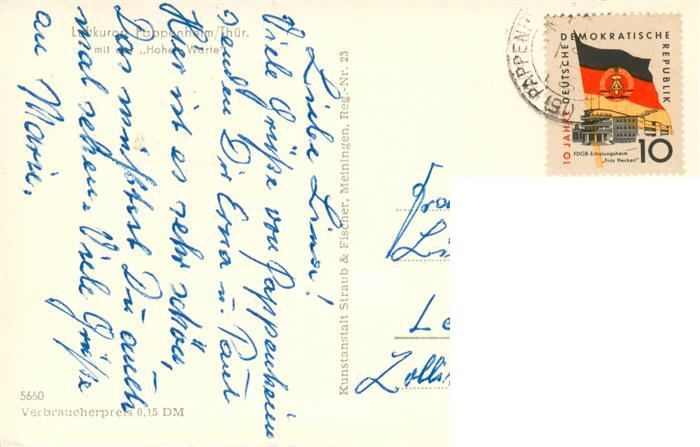 Luftkurort Pappenheim/Thür.
mit der „Hohen Warte“
Liebe Linda!
Viele Grüße von Pappenheim
senden Dir Erna u. Paul
Hier ist es sehr schön,
Das müßtest Du auch
mal sehen. Viele Grüße
an Marie.
5660
Verbraucherpreis 0,15 DM
Kunstanstalt Straub & Fischer, Meiningen, Reg.-Nr. 23
PAPPENH
10 JAHRE DEUTSCHE DEMOKRATISCHE REPUBLIK
FDGB-Erholungsheim
„Fritz Heckert“
10
Fra
Li
Le
Zolls